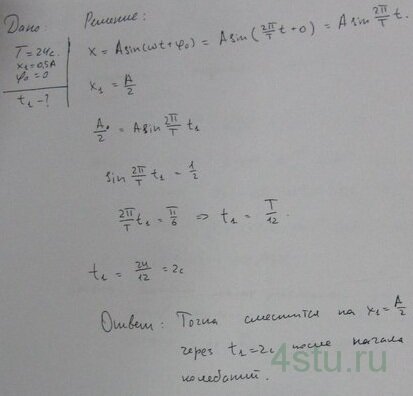 Дано
T = 24c.
x₁ = 0,5A
φ₀ = 0
t₁ - ?
Решение:
x = A sin(ωt + φ₀) = A sin(2π/T t + 0) = A sin 2π/T t.
x₁ = A/2
A/2 = A sin 2π/T t₁
sin 2π/T t₁ = 1/2
2π/T t₁ = π/6 ⇒ t₁ = T/12.
t₁ = 24/12 = 2c
Ответ: Точка сместится на x₁ = A/2
через t₁ = 2c после начала
колебаний.
4stu.ru